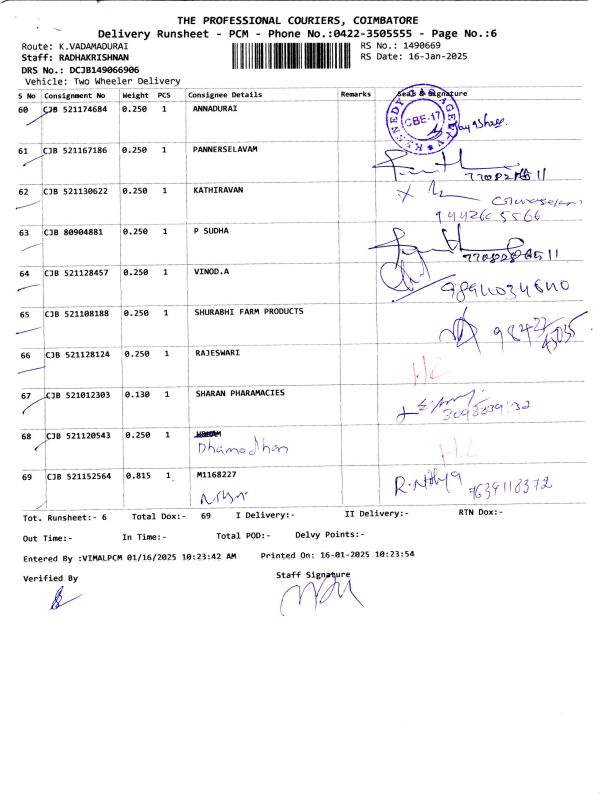 THE PROFESSIONAL COURIERS, COIMBATORE
Delivery Runsheet - PCM - Phone No.:0422-3505555 - Page No.:6
Route: K.VADAMADURAI
RS No.: 1490669
Staff: RADHAKRISHNAN
RS Date: 16-Jan-2025
DRS No.: DCJB149066906
Vehicle: Two Wheeler Delivery
S No Consignment No Weight PCS Consignee Details Remarks Seal & Signature
60 CJB 521174684 0.250 1 ANNADURAI
KENNEDY AGENCY CBE-17
61 CJB 521167186 0.250 1 PANNERSELAVAM
62 CJB 521130622 0.250 1 KATHIRAVAN
63 CJB 80904881 0.250 1 P SUDHA
64 CJB 521128457 0.250 1 VINOD.A
65 CJB 521108188 0.250 1 SHURABHI FARM PRODUCTS
66 CJB 521128124 0.250 1 RAJESWARI
67 CJB 521012303 0.130 1 SHARAN PHARAMACIES
68 CJB 521120543 0.250 1
Dhamodhan
69 CJB 521152564 0.815 1 M1168227 R.Nithya 7639118372
Tot. Runsheet:- 6 Total Dox:- 69 I Delivery:- II Delivery:- RTN Dox:-
Out Time:- In Time:- Total POD:- Delvy Points:-
Entered By :VIMALPCM 01/16/2025 10:23:42 AM Printed On: 16-01-2025 10:23:54
Verified By Staff Signature